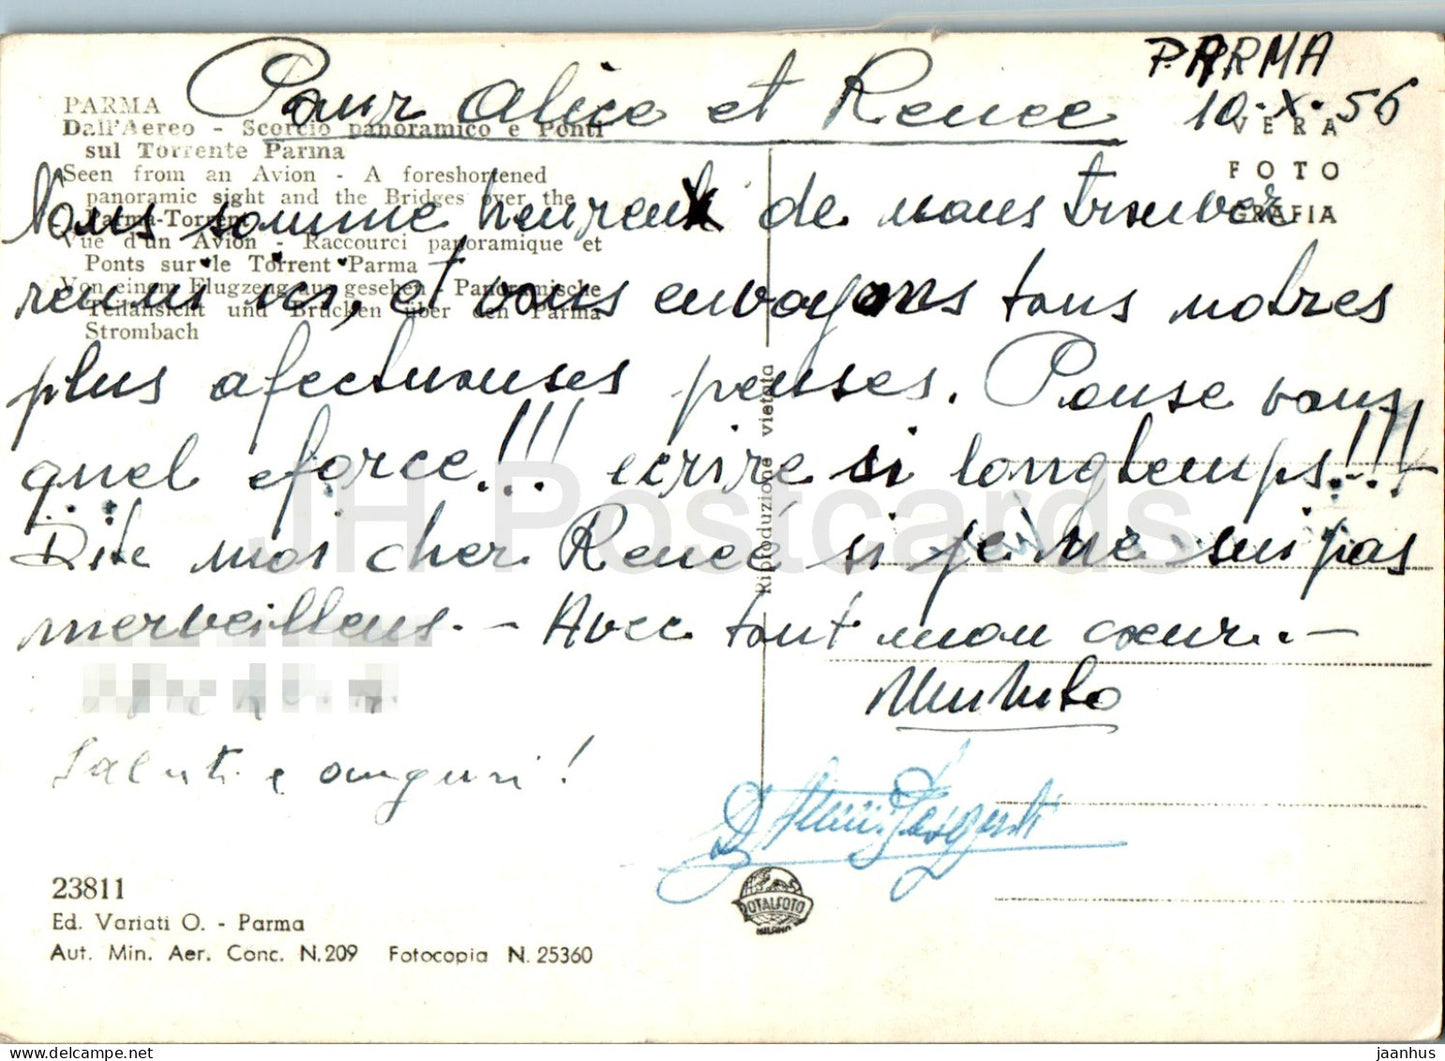 PARMA
10.X.56
Pour Alice et Renee
PARMA
Dall'Aereo - Scorcio panoramico e Ponti
sul Torrente Parma
Seen from an Avion - A foreshortened
panoramic sight and the Bridges over the
Parma-Torrent
Vue d'un Avion - Raccourci panoramique et
Ponts sur le Torrent Parma
Von einem Flugzeug aus gesehen - Panoramische
Teilansicht und Brücken über den Parma
Strombach
VERA
FOTO
GRAFIA
Nous somme heureux de nous trouver
reuni ici, et vous envoyons tous notres
plus afectuouses penses. Pense vous
quel eforce!!! ecrire si longtemps!!!
Dite moi cher Reneé si je ne sui pas
merveilleus. - Avec tout mon cœur. -
Saluti e auguri!
Riproduzione vietata
23811
Ed. Variati O. - Parma
Aut. Min. Aer. Conc. N. 209 Fotocopia N. 25360
ROTALFOTO
MILANO
JH Postcards
delcampe.net
jaanhus